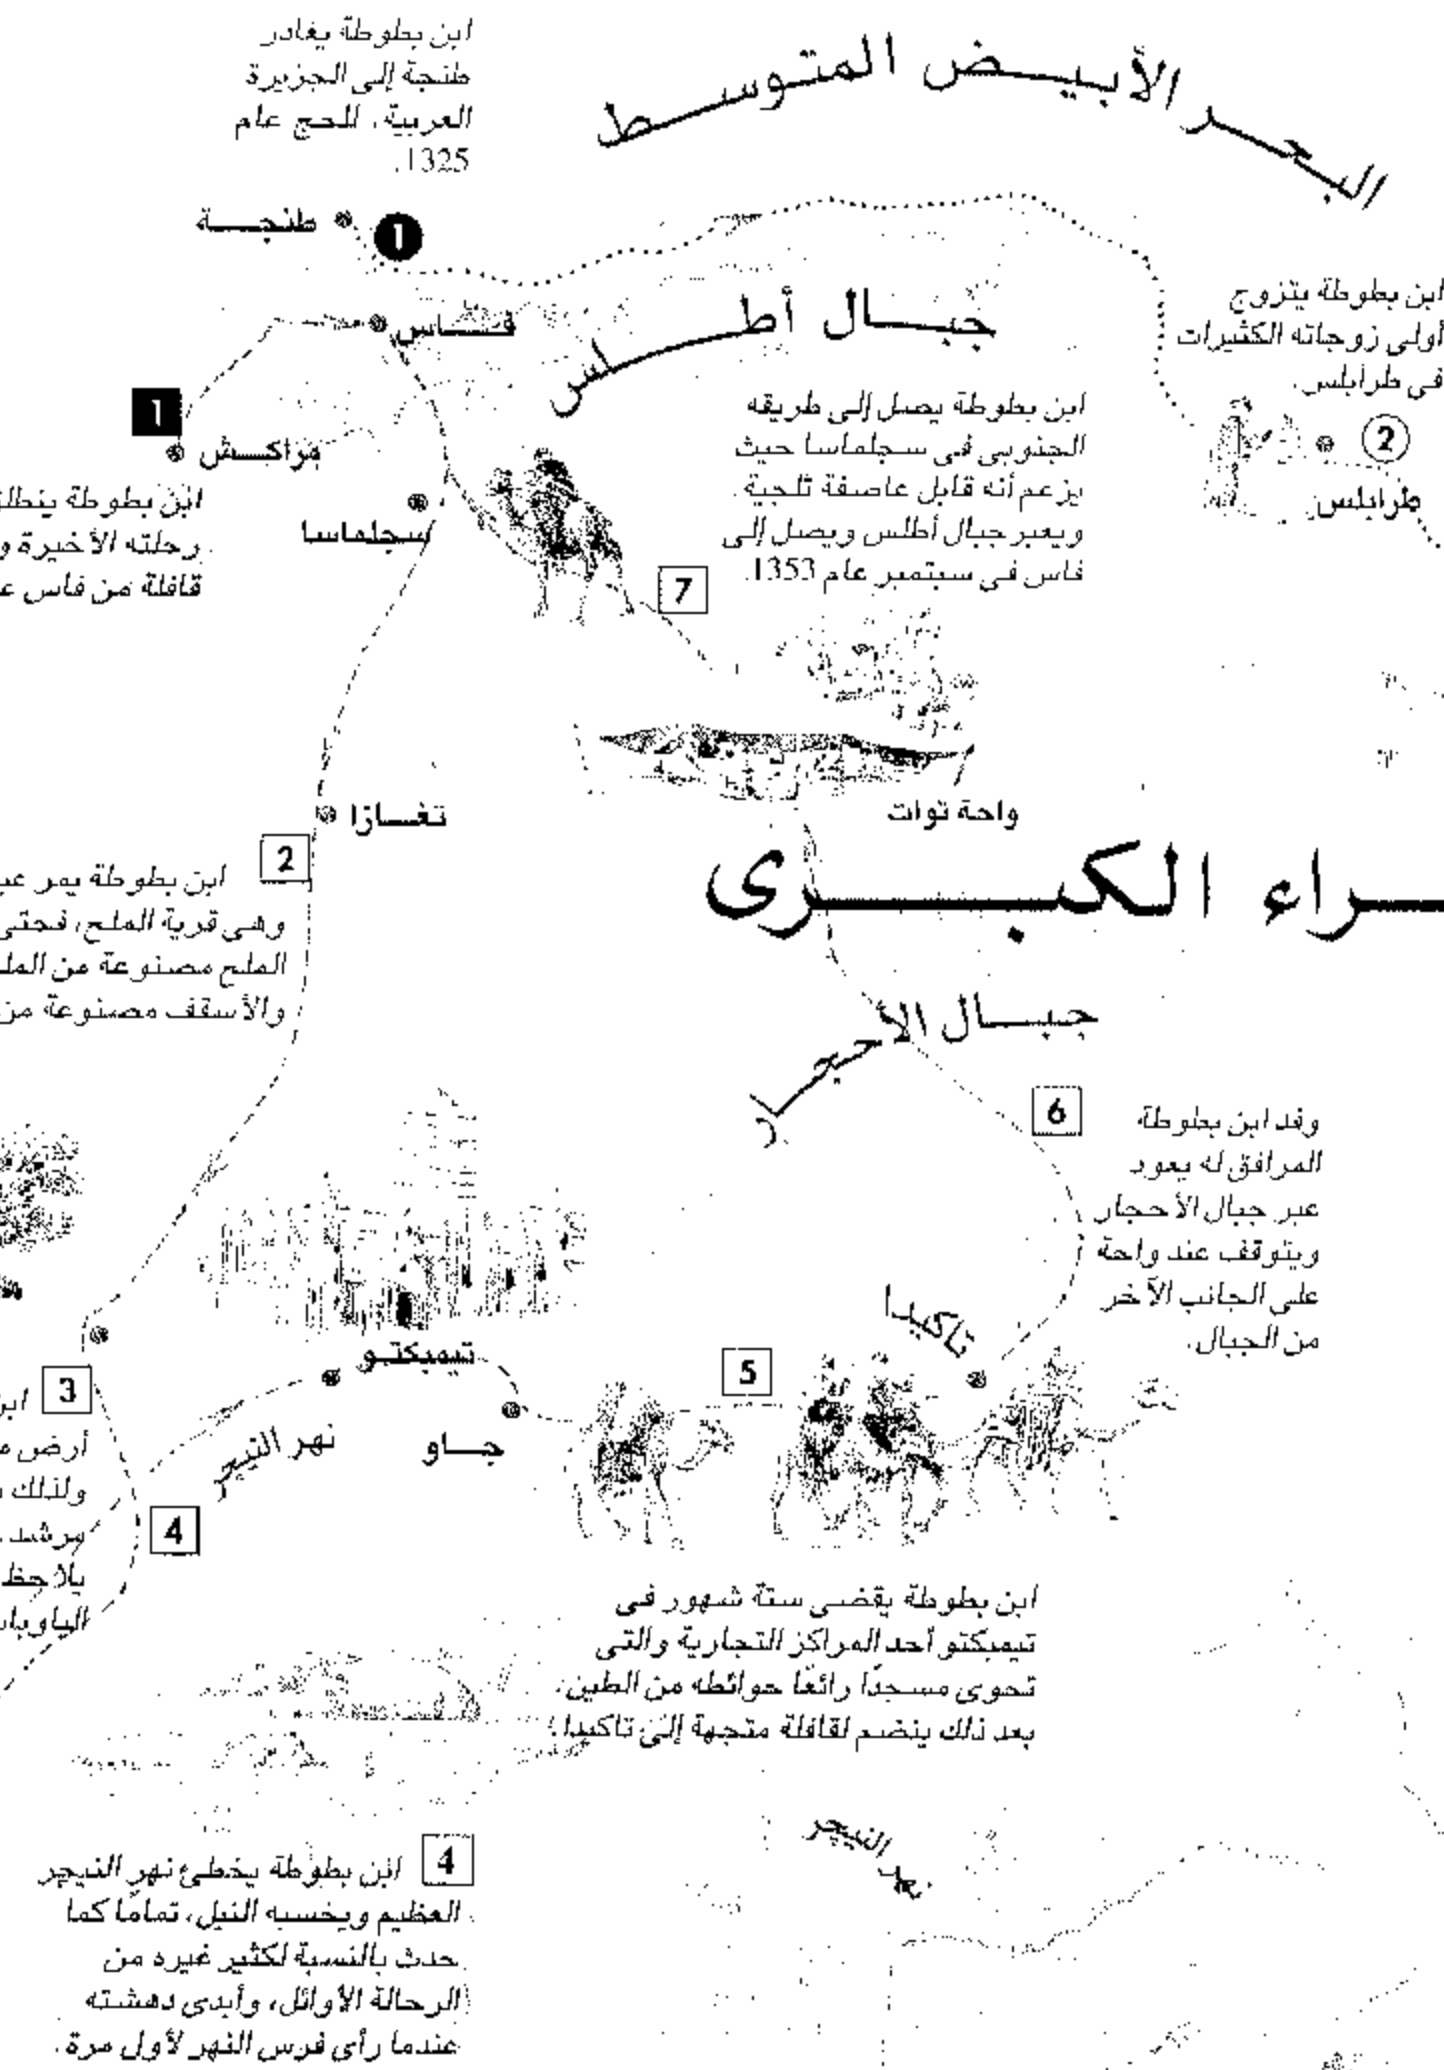 ابن بطوطة يغادر
طنجة إلى الجزيرة
العربية، للحج عام
1325.
البحر الأبيض المتوسط
طنجة
1
جبال أطلس
فاس
ابن بطوطة يتزوج
أولى زوجاته الكثيرات
فى طرابلس.
2
طرابلس
1
مراكش
ابن بطوطة يصل إلى طريقه
الجنوبى فى سجلماسا حيث
يزعم أنه قابل عاصفة ثلجية.
ويعبر جبال أطلس ويصل إلى
فاس فى سبتمبر عام 1353.
7
سجلماسا
ابن بطوطة
رحلته الأخيرة و
قافلة من فاس
واحة توات
تغازا
2
ابن بطوطة يمر
وهى قرية الملح، فحتى
الملح مصنوعة من
والأسقف مصنوعة من
الكبرى
جبال الأحجار
6
وفد ابن بطوطة
المرافق له يعود
عبر جبال الأحجار
ويتوقف عند واحة
على الجانب الآخر
من الجبال.
تاكيدا
تيمبكتو
5
جاو
نهر النيجر
3
أرض
ولذلك
مرشد
يلاحظ
4
ابن بطوطة يقضى ستة شهور فى
تيمبكتو أحد المراكز التجارية والتى
تحوى مسجدًا رائعًا حوائطه من الطين.
بعد ذلك ينضم لقافلة متجهة إلى تاكيدا.
نهر النيجر
4
ابن بطوطة يخطئ نهر النيجر
العظيم ويحسبه النيل، تمامًا كما
حدث بالنسبة لكثير غيره من
الرحالة الأوائل، وأبدى دهشته
عندما رأى فرس النهر لأول مرة.